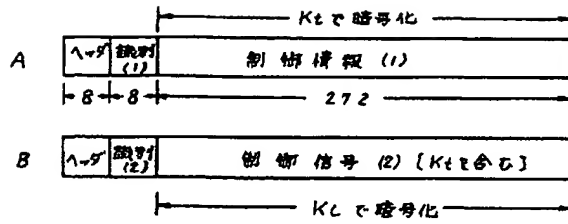 Ktで暗号化
A ヘッダ 識別(1) 制御情報 (1)
8 8 272
B ヘッダ 識別(2) 制御信号 (2) [Ktを含む]
KLで暗号化